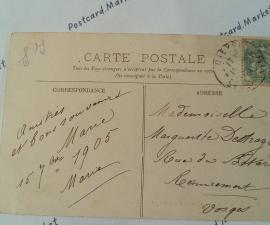 Postcard.Market
CARTE POSTALE
Tous les Pays étrangers n'acceptent pas la Correspondance au recto
(Se renseigner à la Poste)
CORRESPONDANCE
ADRESSE
Amitiés
et bons souvenirs
Marie
15 7bre 1905
Marie
Mademoiselle
Marguerite
Rue du
Remiremont
Vosges